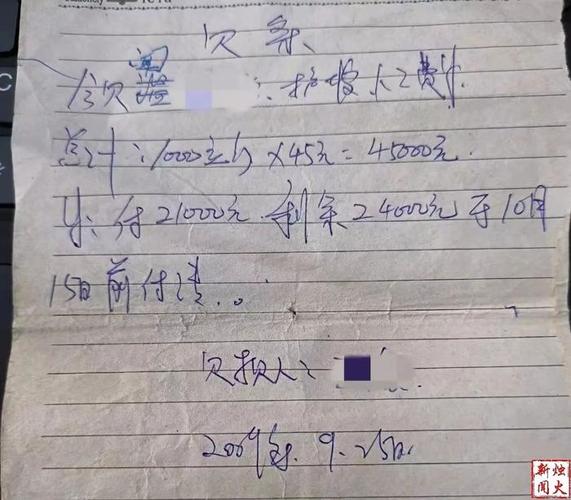 欠条
今欠
人工费
总计:1000平方×45元=45000元.
付21000元 剩余24000元于10月
15日前付清。
欠款人:
2009年.9.25日.
新烛
闻火